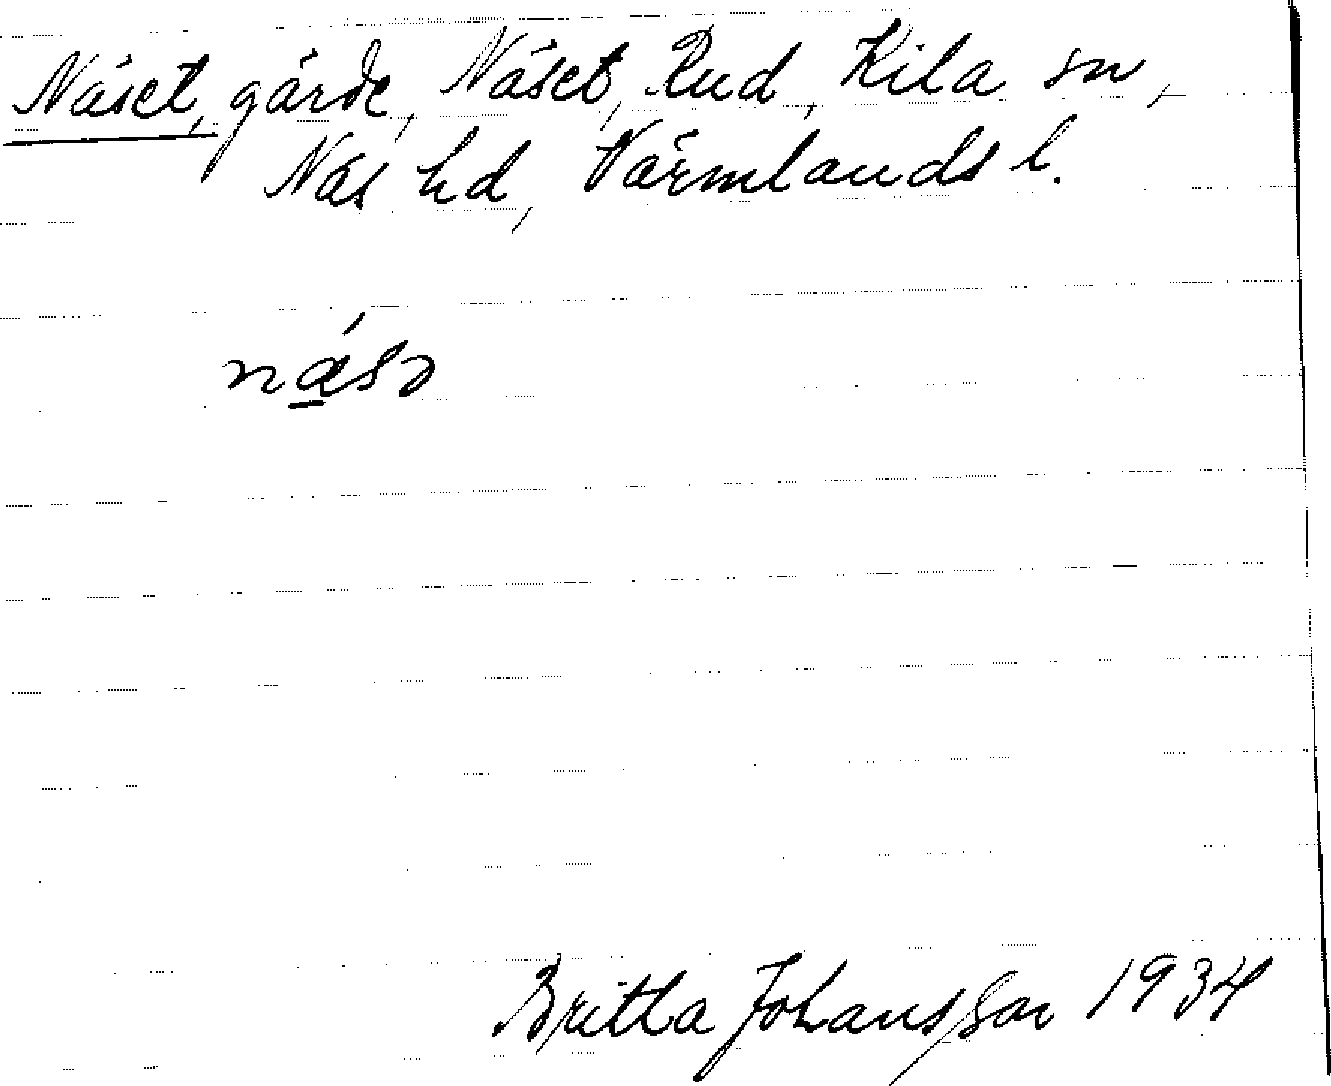 Näset, gärde, Näset, Rud, Kila sn,
Näs hd, Värmlands l.
nä́sə
Britta Johansson 1934